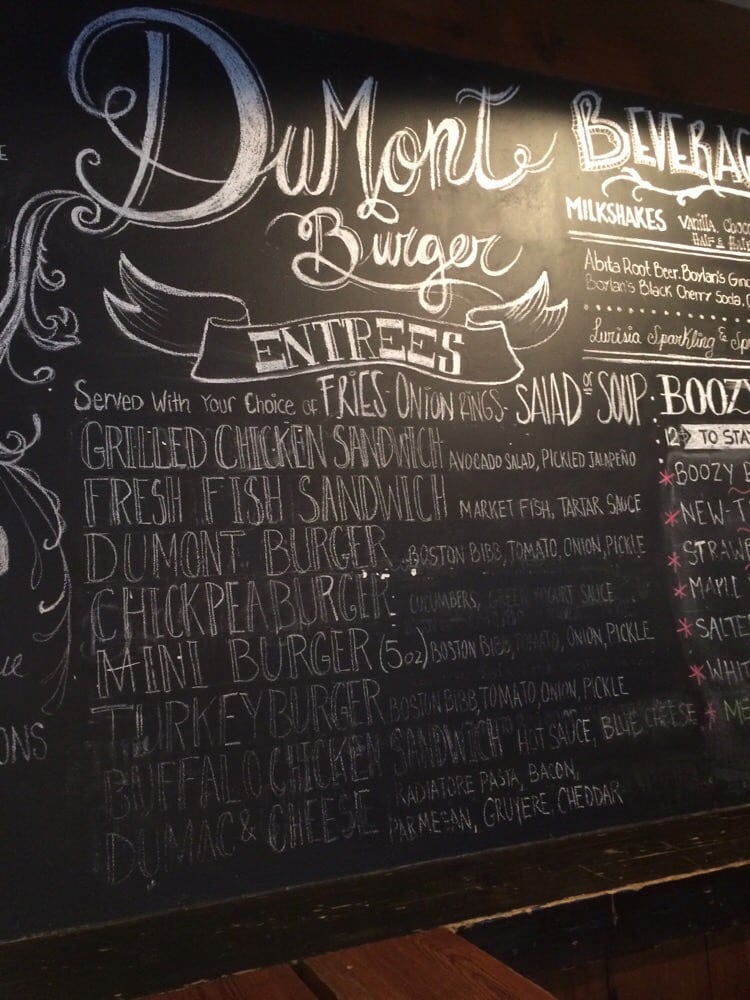 DuMont
Burger
ENTREES
Served With Your Choice of FRIES · ONION RINGS · SALAD or SOUP ·
GRILLED CHICKEN SANDWICH AVOCADO SALAD, PICKLED JALAPEÑO
FRESH FISH SANDWICH MARKET FISH, TARTAR SAUCE
DUMONT BURGER BOSTON BIBB, TOMATO, ONION, PICKLE
CHICKPEA BURGER CUCUMBERS, GREEK YOGURT SAUCE
MINI BURGER (5oz) BOSTON BIBB, TOMATO, ONION, PICKLE
TURKEY BURGER BOSTON BIBB, TOMATO, ONION, PICKLE
BUFFALO CHICKEN SANDWICH HOT SAUCE, BLUE CHEESE
DUMAC & CHEESE RADIATORE PASTA, BACON,
PARMESAN, GRUYERE, CHEDDAR
BEVERAG
MILKSHAKES Vanilla, Choc
Half & Half
Abita Root Beer, Boylan's Ging
Boylan's Black Cherry Soda,
Lurisia Sparkling & Sp
BOOZ
12 TO STA
BOOZY
NEW-T
STRAWB
MAPLE
SALTE
WHIT
ONS